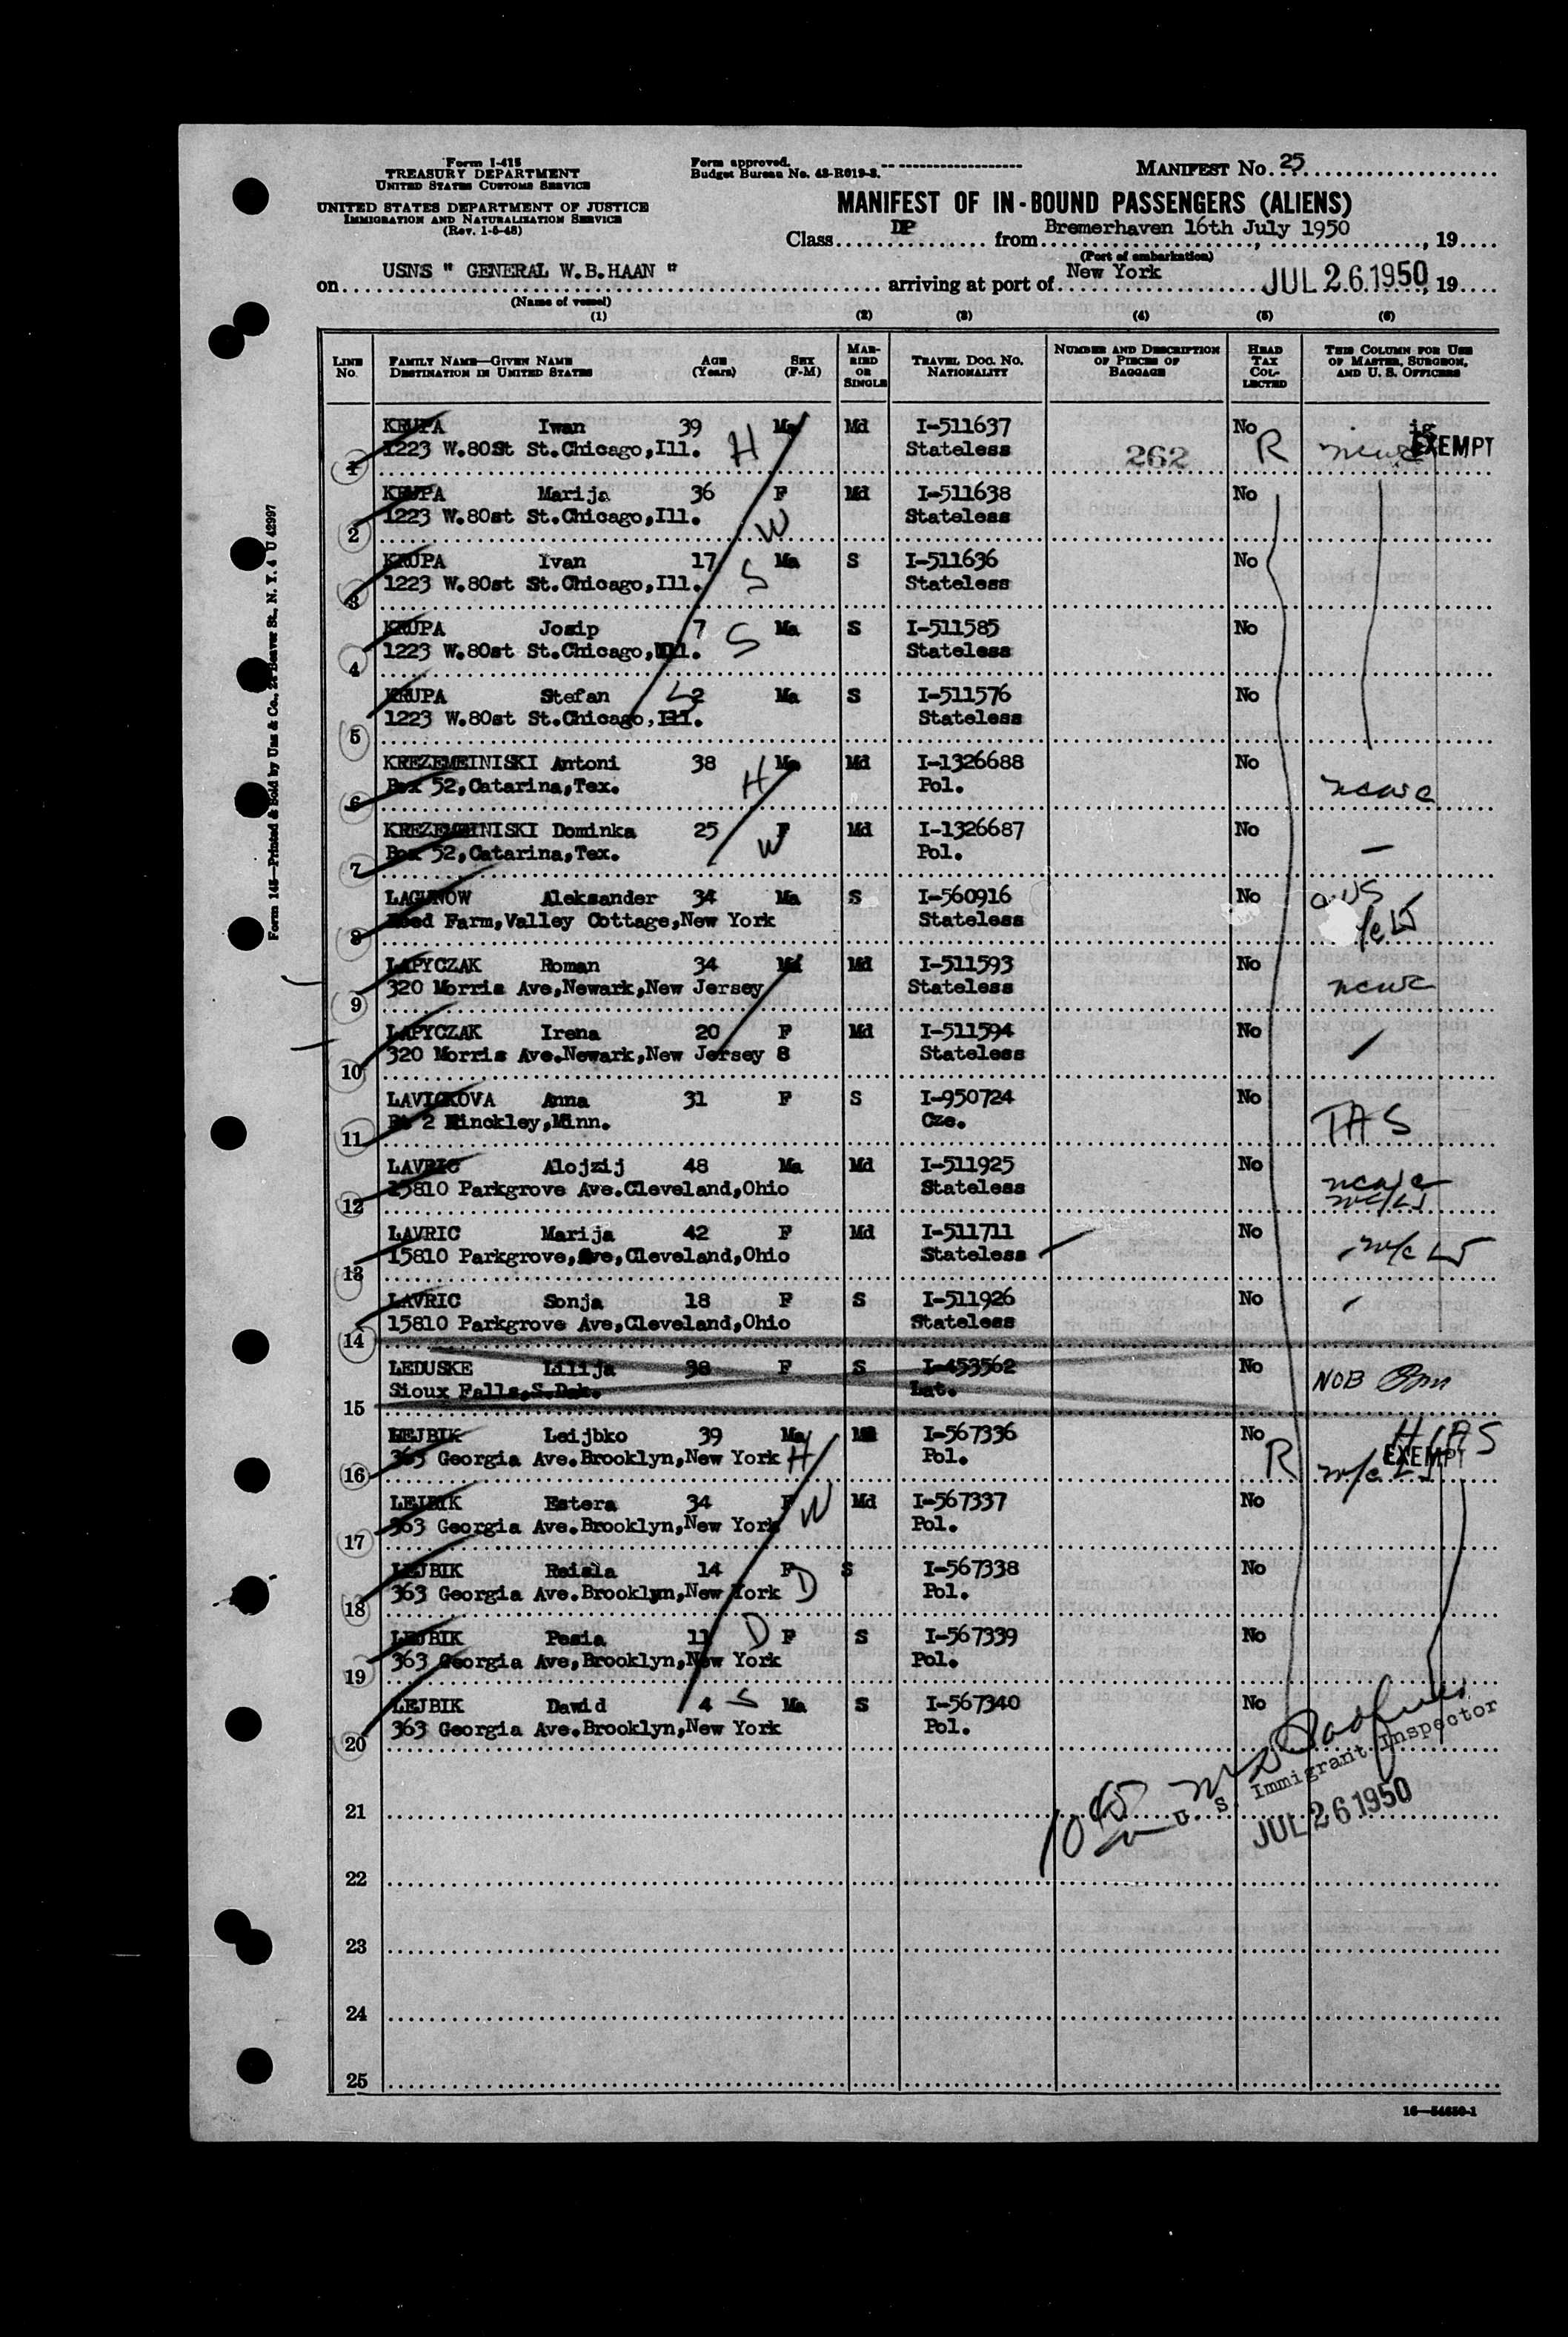 Form I-415
TREASURY DEPARTMENT
UNITED STATES CUSTOMS SERVICE
UNITED STATES DEPARTMENT OF JUSTICE
IMMIGRATION AND NATURALIZATION SERVICE
(Rev. 1-5-48)
Form approved.
Budget Bureau No. 43-R019-3.
MANIFEST No. 25
MANIFEST OF IN-BOUND PASSENGERS (ALIENS)
Class DP from Bremerhaven 16th July 1950, 19
(Port of embarkation)
on USNS " GENERAL W.B.HAAN " arriving at port of New York JUL 26 1950, 19
(Name of vessel)
(1) (2) (3) (4) (5) (6)
LINE No. FAMILY NAME—GIVEN NAME DESTINATION IN UNITED STATES AGE (Years) SEX (F-M) MARRIED OR SINGLE TRAVEL DOC. NO. NATIONALITY NUMBER AND DESCRIPTION OF PIECES OF BAGGAGE HEAD TAX COLLECTED THIS COLUMN FOR USE OF MASTER, SURGEON, AND U. S. OFFICERS
KRUPA Iwan 39 Ma Md I-511637 No is
1 1223 W.80St St.Chicago,Ill. H Stateless 262 R ncwc EXEMPT
KRUPA Marija 36 F Md I-511638 No
2 1223 W.80st St.Chicago,Ill. W Stateless
KRUPA Ivan 17 Ma S I-511636 No
3 1223 W.80st St.Chicago,Ill. S Stateless
KRUPA Josip 7 Ma S I-511585 No
4 1223 W.80st St.Chicago,Ill. S Stateless
KRUPA Stefan 2 Ma S I-511576 No
5 1223 W.80st St.Chicago,Ill. Stateless
KREZEMEINISKI Antoni 38 H Ma Md I-1326688 No
6 Box 52,Catarina,Tex. Pol. ncwc
KREZEMEINISKI Dominka 25 F Md I-1326687 No
7 Box 52,Catarina,Tex. W Pol.
LAGUNOW Aleksander 34 Ma S I-560916 No
8 Reed Farm,Valley Cottage,New York Stateless
LAPYCZAK Roman 34 Md I-511593 No
9 320 Morris Ave,Newark,New Jersey Stateless ncwc
LAPYCZAK Irena 20 F Md I-511594 No
10 320 Morris Ave.Newark,New Jersey 8 Stateless
LAVICKOVA Anna 31 F S I-950724 No
11 Rt 2 Hinckley,Minn. Cze. TAS
LAVRIC Alojzij 48 Ma Md I-511925 No
12 15810 Parkgrove Ave.Cleveland,Ohio Stateless ncwc
LAVRIC Marija 42 F Md I-511711 No
13 15810 Parkgrove,Ave,Cleveland,Ohio Stateless
LAVRIC Sonja 18 F S I-511926 No
14 15810 Parkgrove Ave,Cleveland,Ohio Stateless
LEDUSKE Lilija 38 F S I-453562 No
15 Sioux Falls,S.Dak. Lat. NOB
LEJBIK Leijbko 39 Ma Md I-567336 No HIAS
16 363 Georgia Ave.Brooklyn,New York H Pol. R EXEMPT
LEJBIK Estera 34 F Md I-567337 No
17 363 Georgia Ave.Brooklyn,New York W Pol.
LEJBIK Reisla 14 F S I-567338 No
18 363 Georgia Ave.Brooklyn,New York D Pol.
LEJBIK Pesia 11 D F S I-567339 No
19 363 Georgia Ave,Brooklyn,New York Pol.
LEJBIK Dawid 4 S Ma S I-567340 No
20 363 Georgia Ave.Brooklyn,New York Pol.
U. S. Immigrant Inspector
JUL 26 1950
21
22
23
24
25
16—54650-1
Form 145—Printed & Sold by Unz & Co., 24 Beaver St., N. Y. 4 U 42997